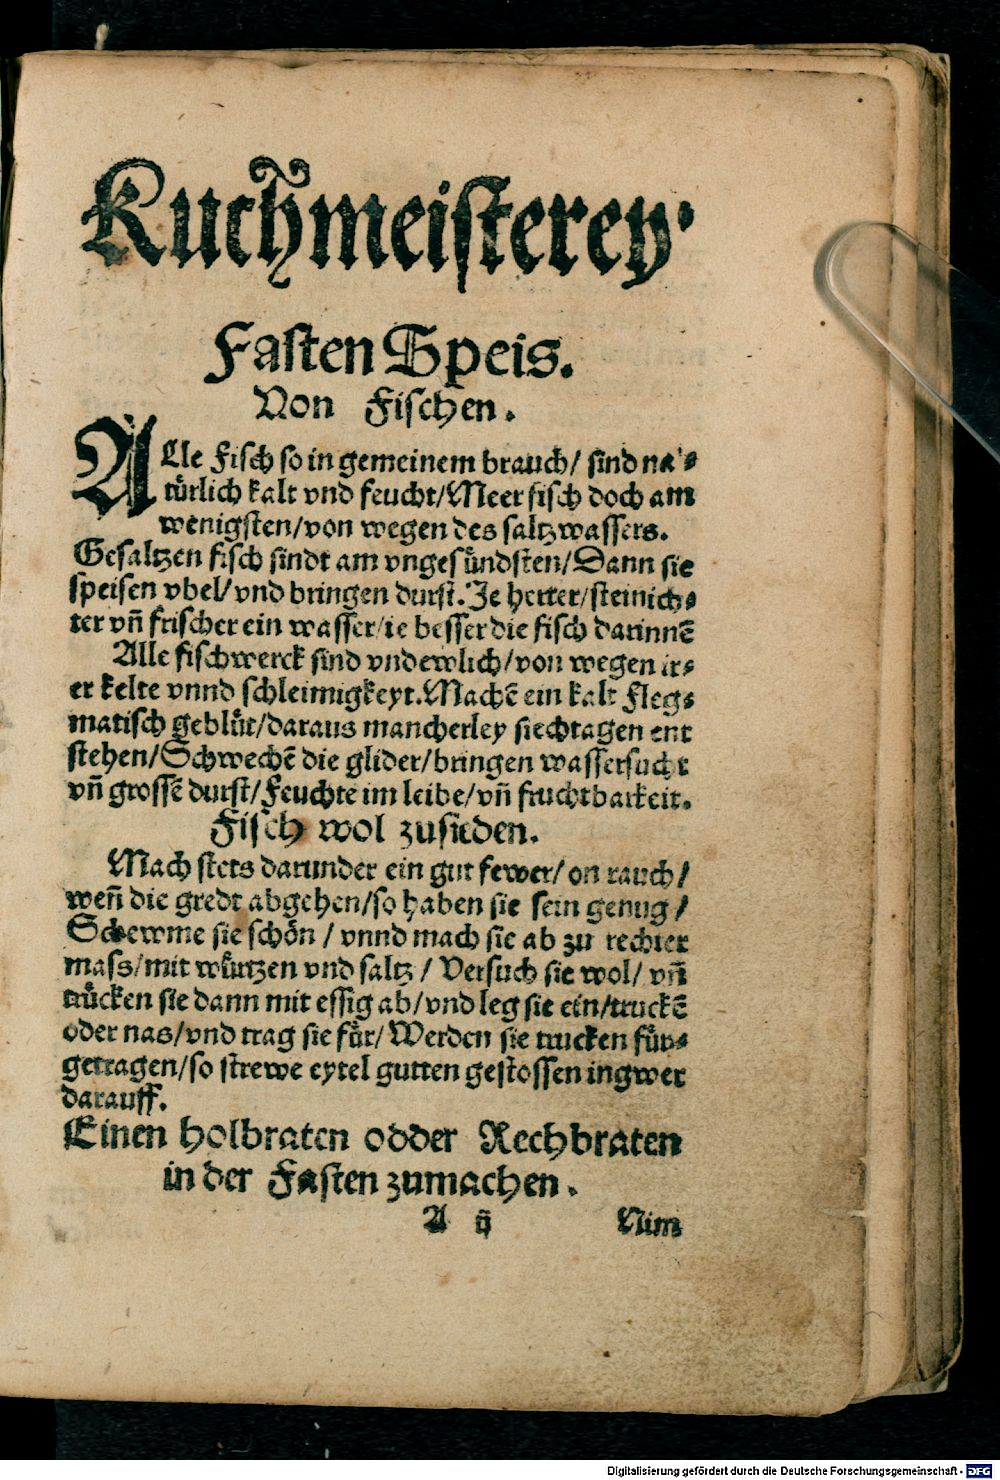 Kuchmeisterey.
Fasten Speis.
Von Fischen.
ALle Fisch so in gemeinem brauch/ sind na-
tuͤrlich kalt vnd feucht/Meer fisch doch am
wenigsten/von wegen des saltzwassers.
Gesaltzen fisch sindt am vngesuͤndsten/Dann sie
speisen vbel/vnd bringen durst. Je herter/steinich-
ter vñ frischer ein wasser/ie besser die fisch darinnẽ
Alle fischwerck sind vndewlich/von wegen ir-
er kelte vnnd schleimigkeyt. Machẽ ein kalt Fleg-
matisch gebluͤt/daraus mancherley siechtagen ent
stehen/Schwechẽ die glider/bringen wassersucht
vñ grossẽ durst/Feuchte im leibe/vñ fruchtbarkeit.
Fisch wol zusieden.
Mach stets darunder ein gut fewer/on rauch/
weñ die gredt abgehen/so haben sie sein genug/
Schewme sie schoͤn/vnnd mach sie ab zu rechter
mass/mit wuͤrtzen vnd saltz/Versuch sie wol/vñ
truͤcken sie dann mit essig ab/vnd leg sie ein/truckẽ
oder nas/vnd trag sie fuͤr/Werden sie trucken fuͤr-
getragen/so strewe eytel gutten gestossen ingwer
darauff.
Einen holbraten odder Rechbraten
in der Fasten zumachen.
A ij Nim
Digitalisierung gefördert durch die Deutsche Forschungsgemeinschaft - DFG